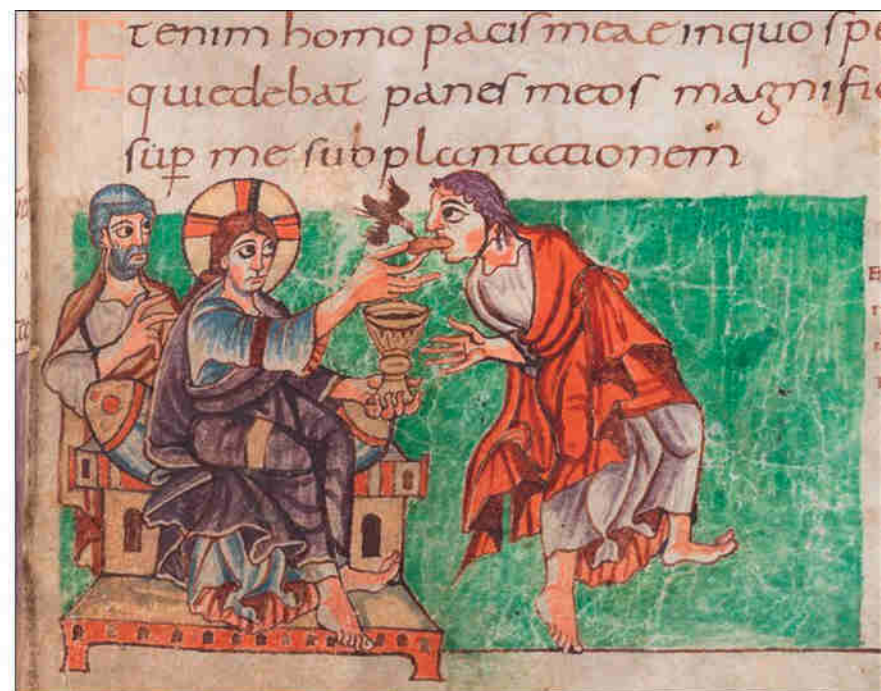 Etenim homo pacis meae inquo spe
quiedebat panes meos magnifi
sup me subplantationem